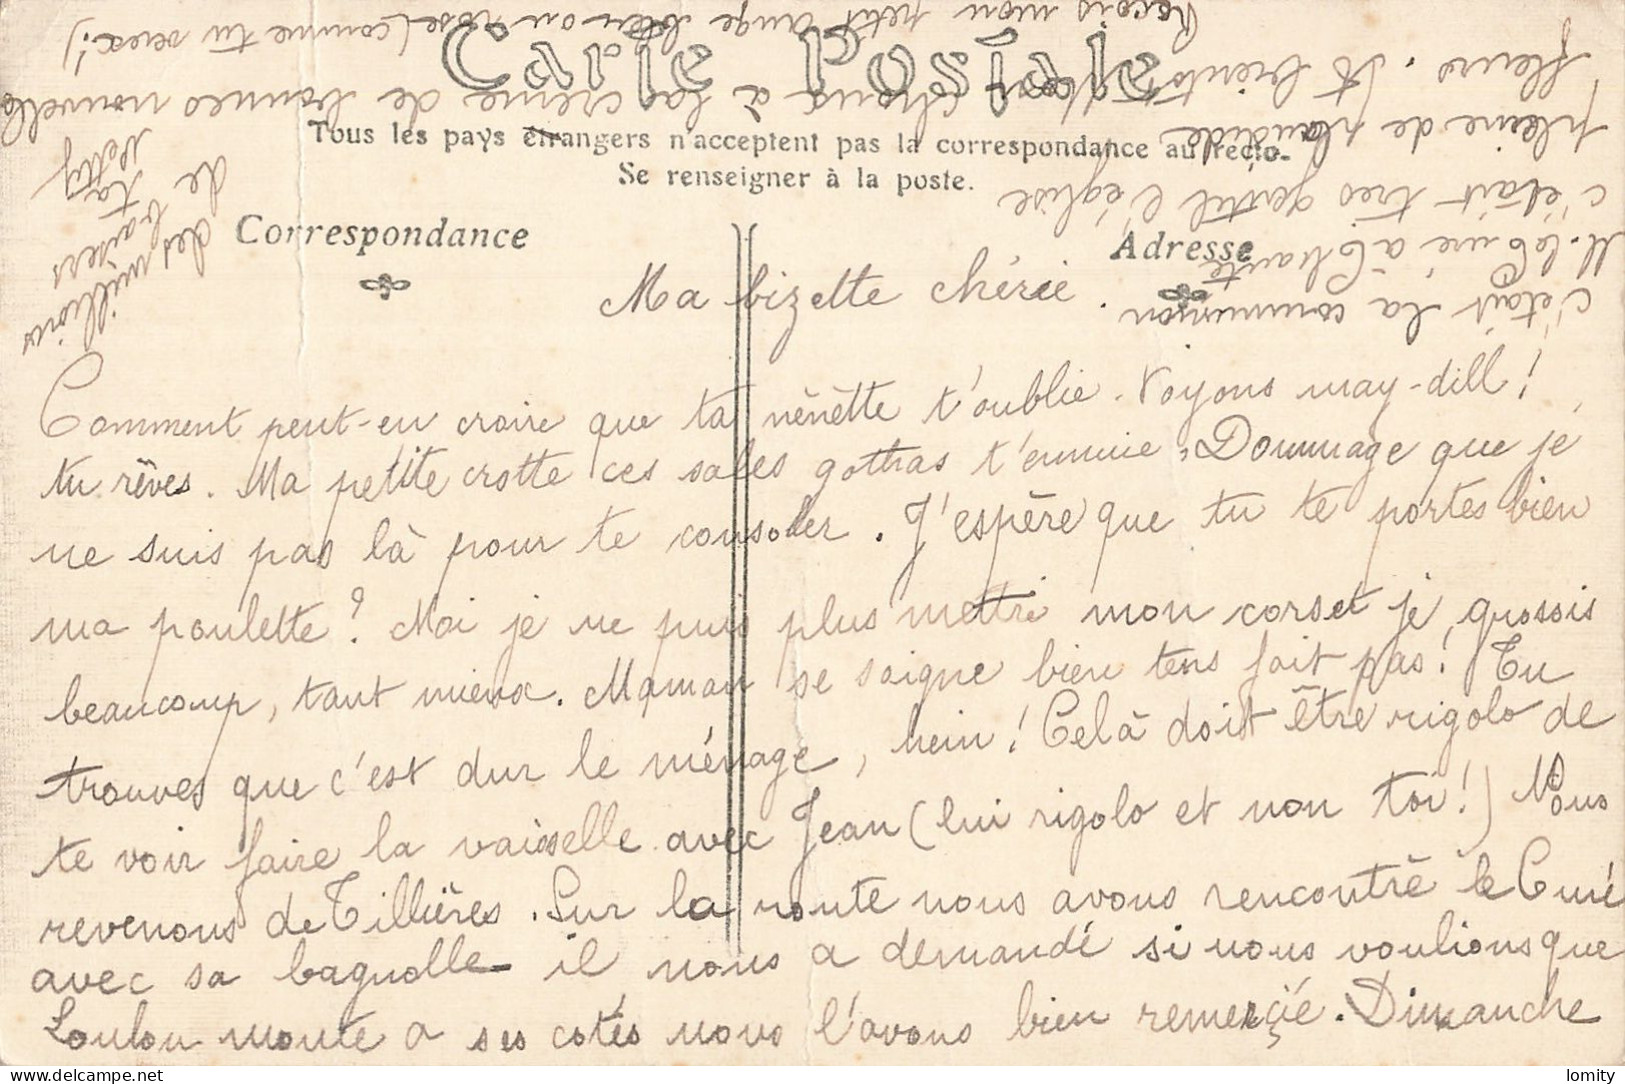 Carte Postale
Tous les pays étrangers n'acceptent pas la correspondance au recto.
Se renseigner à la poste.
Correspondance
Adresse
Ma bizette chérie.
Comment peut-en croire que ta nénétte t'oublie. Voyons may-dill!
tu rêves. Ma petite crotte ces sales gothas t'ennuie, Dommage que je
ne suis pas là pour te consoler. J'espère que tu te portes bien
ma poulette? Moi je ne puis plus mettre mon corset je, grossis
beaucoup, tant mieux. Maman se soigne bien tens fait pas! Tu
trouves que c'est dur le ménage, hein! Celà doit être rigolo de
te voir faire la vaisselle avec Jean (lui rigolo et non toi!) Nous
revenons de Tillières. Sur la route nous avons rencontré le Curé
avec sa bagnolle il nous a demandé si nous voulions que
Loulou monte a ses cotés nous l'avons bien remerçié. Dimanche
c'était la communion
M. le Curé à Chanté
c'était très gentil l'église
pleine de
fleurs. A bientôt choux à la crème de bonnes nouvelles
Reçois mon petit ange bleu ou rose (comme tu veux!)
des millions
de baisers
ta